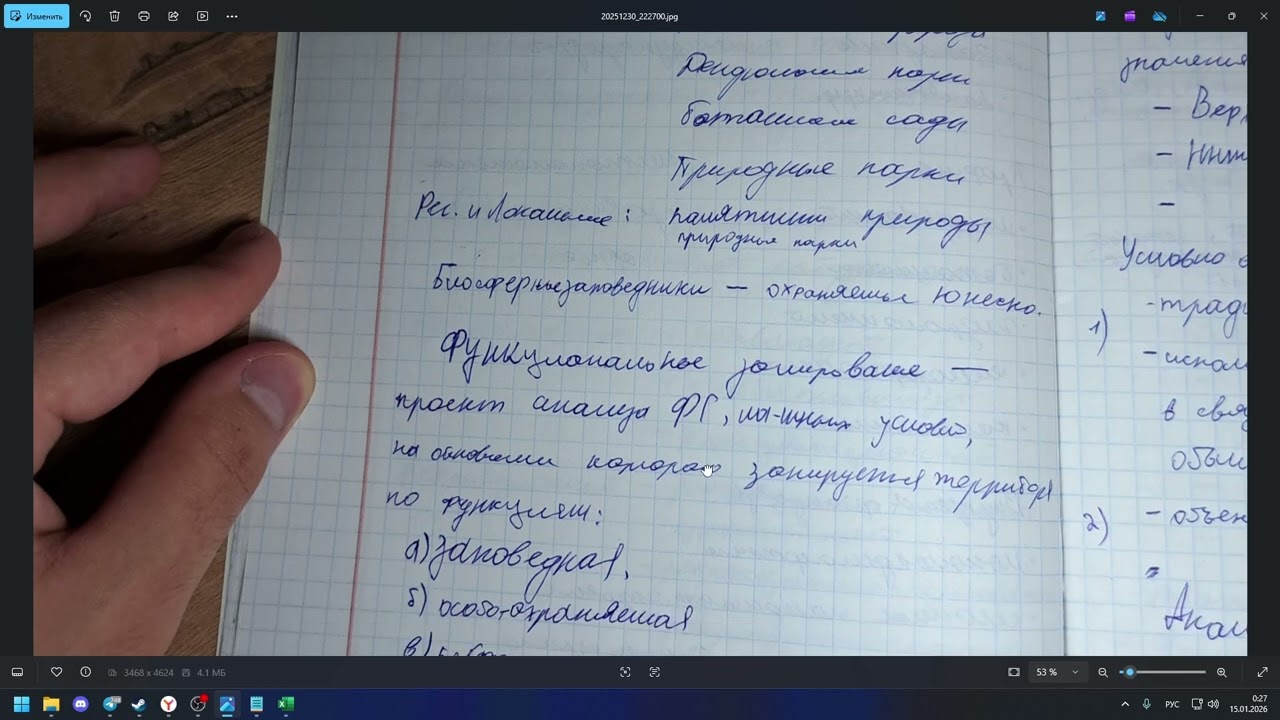 Изменить
20251230_222700.jpg
Дендрологич парки
ботанич сады
Природные парки
Рег. и Локальные: памятники природы
природные парки
Биосферные заповедники — охраняемые Юнеско.
Функциональное зонирование —
проект анализа ФГ, условий,
на основании которого зонируется территория
по функциям:
а) Заповедная,
б) особо-охраняемая
в)
значения
- Вер
- Инт
-
Условно
1) -трад
- испол
в свя
объ
2) - объек
Анал
3468 x 4624
4.1 МБ
53 %
РУС
0:27
15.01.2026